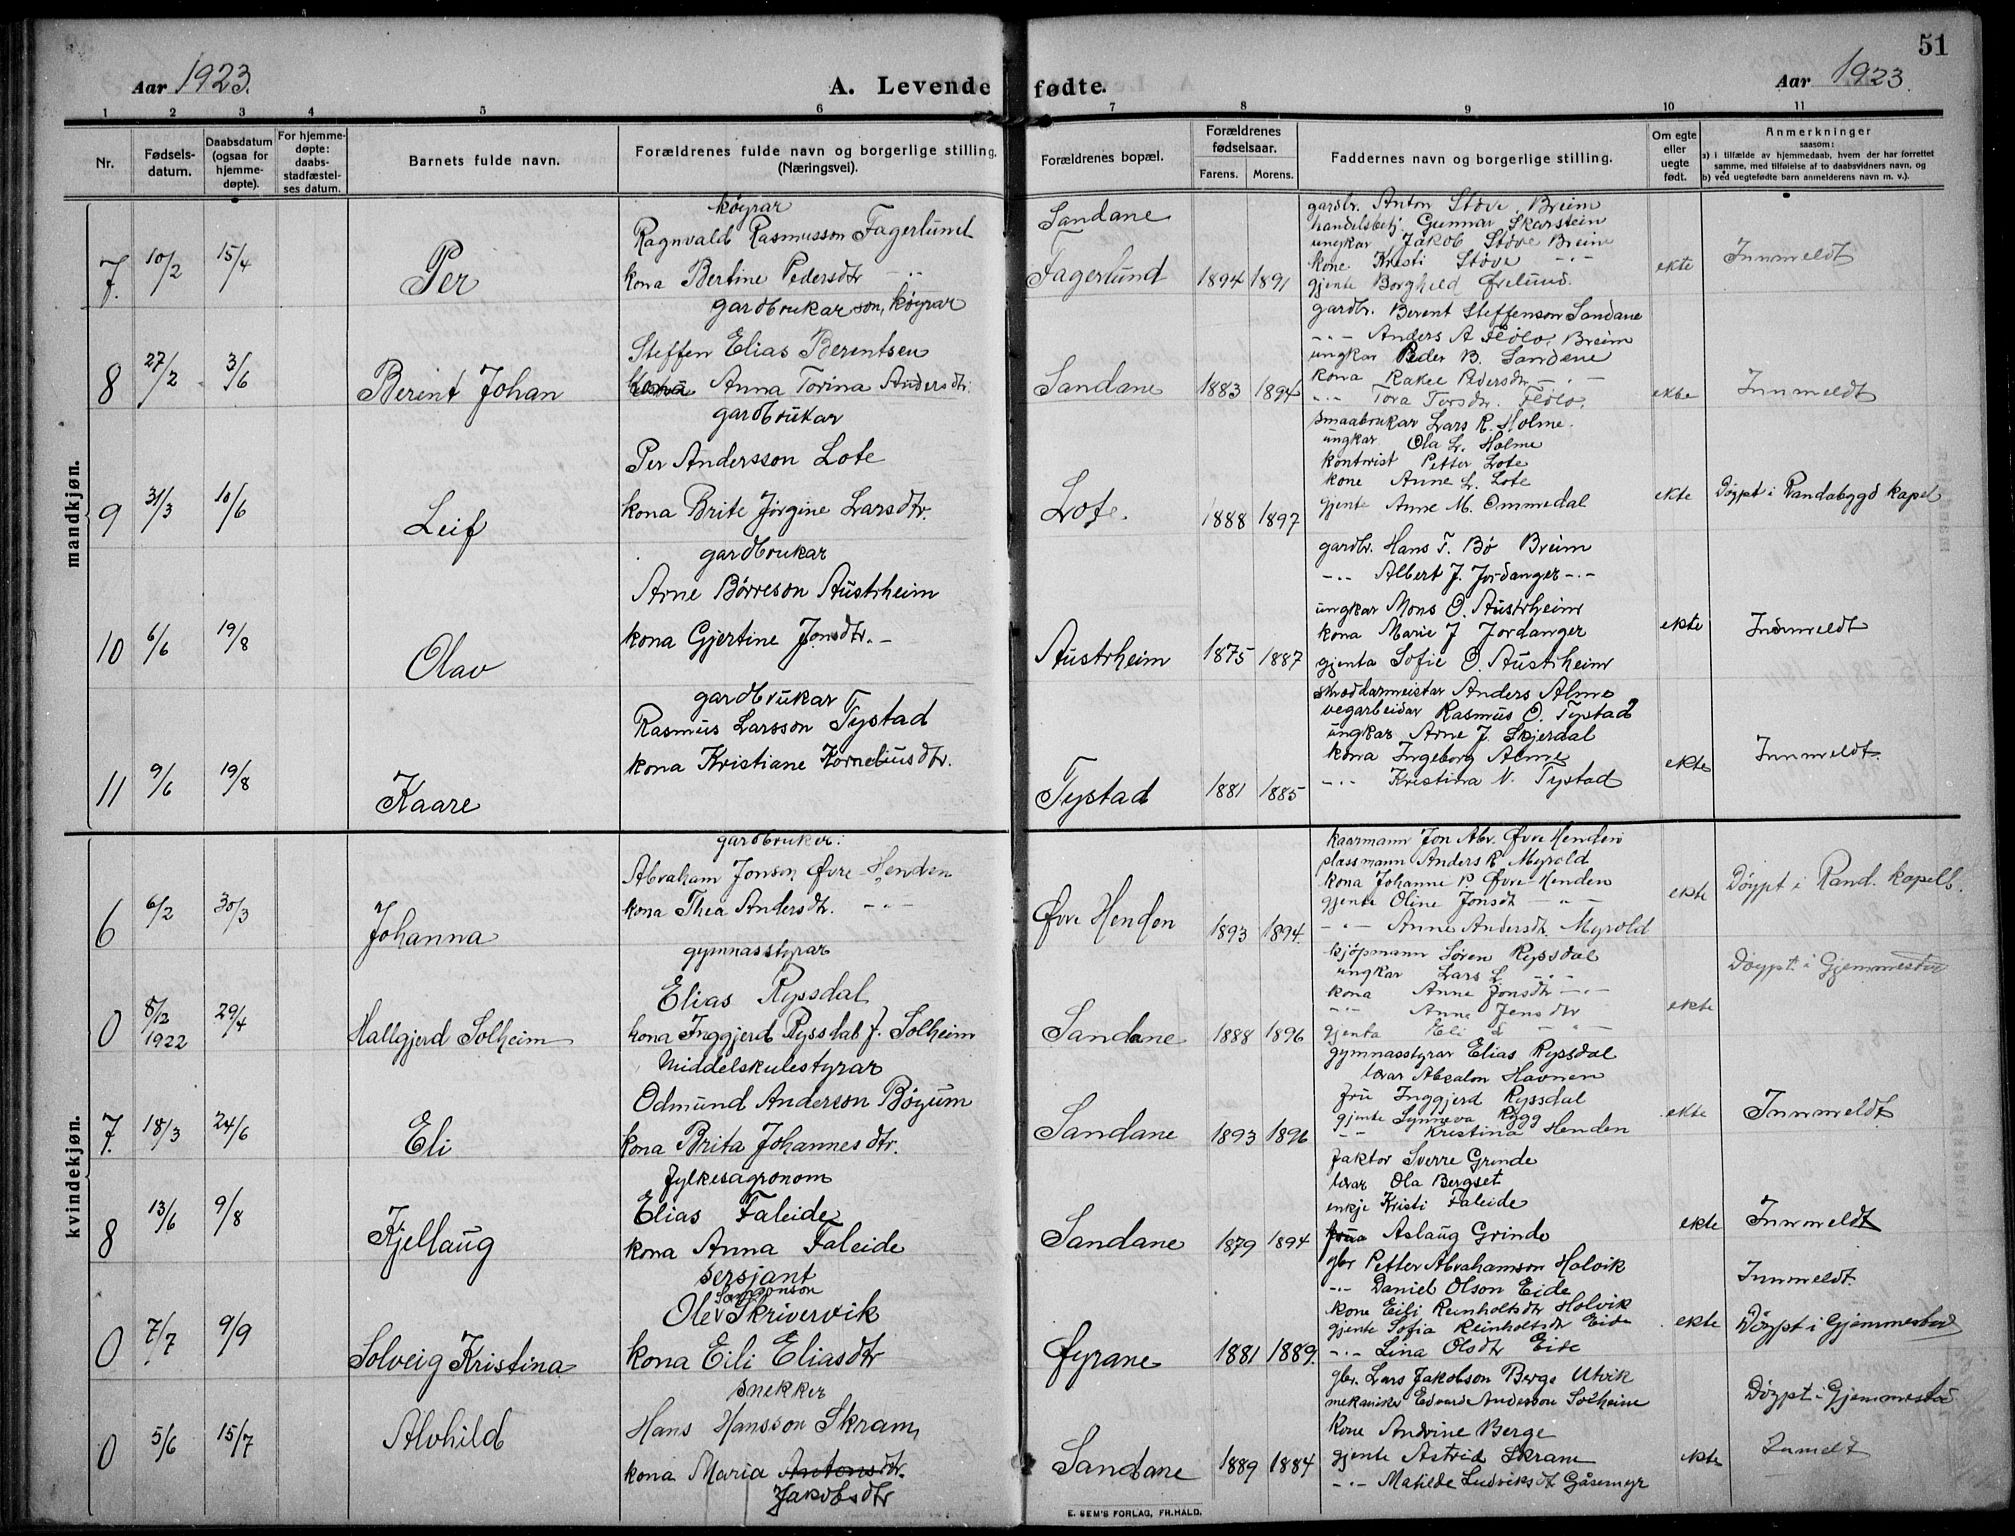 51
Aar 1923.
A. Levende fødte.
Aar 1923.
1 2 3 4 5 6 7 8 9 10 11
Nr.
Fødsels-
datum.
Daabsdatum
(ogsaa for
hjemme-
døpte).
For hjemme-
døpte:
daabs-
stadfæstel-
ses datum.
Barnets fulde navn.
Forældrenes fulde navn og borgerlige stilling.
(Næringsvei).
Forældrenes bopæl.
Forældrenes
fødselsaar.
Farens. Morens.
Faddernes navn og borgerlige stilling.
Om egte
eller
uegte
født.
Anmerkninger
saasom:
a) i tilfælde av hjemmedaab, hvem der har forrettet
samme, med tilføielse af to daabsvidners navn, og
b) ved uegtefødte barn anmelderens navn m. v.).
mandkjøn.
7.
10/2
15/4
Per
køyrar
Ragnvald Rasmusson Fagerlund
kona Bertine Pedersdtr -"-
Sandane
Fagerlund
1894 1891
gardbr. Anton Støve, Breim
handelsbetj. Gunnar Skarstein
ungkar Jakob Støve Breim
kone Kristi Støve -"-
gjente Borghild Ørelund.
ekte
Innmeldt
8
27/2
3/6
Berint Johan
gardbrukarson, køyrar
Steffen Elias Berentsen
kona Anna Torina Andersdtr.
Sandane
1883 1894
gardbr. Berent Steffenson Sandane
-"- Anders A Fløl­o, Breim
ungkar Peder B. Sandene
kona Rakel Pedersdtr -"-
-"- Tora Torsdtr. Fløl­o.
ekte
Innmeldt
9
31/3
10/6
Leif
gardbrukar
Per Andersson Lote
kona Brite Jørgine Larsdtr.
Lote.
1888 1897
smaabrukar Lars R. Holme.
ungkar Ola L. Holme
kontorist Petter Lote
kone Anne L. Lote
gjente Anne M. Ommedal
ekte
Døypt i Randabygd kapel
10
6/6
19/8
Olav
gardbrukar
Arne Børreson Austrheim
kona Gjertine Jonsdtr. -
Austrheim
1875 1887
gardbr. Hans T. Bø Breim
-"- Albert J. Jordanger -"-
ungkar Mons O. Austrheim
kona Marie J Jordanger
gjenta Sofie O. Austrheim
ekte
Innmeldt
11
9/6
19/8
Kaare
gardbrukar
Rasmus Larsson Tystad
kona Kristiane Korneliusdtr.
Tystad
1881 1885
skræddarmeistar Anders Alme
vegarbeidar Rasmus O. Tystad
ungkar Arne J. Skjerdal
kona Ingeborg Alme
-"- Kristina N. Tystad
ekte
Innmeldt.
kvindekjøn.
6
6/2
30/3
Johanna
gardbruker:
Abraham Jonsen Øvre-Henden
kona Thea Andersdtr. -"-
Øvre Henden
1893 1894.
kaarmann Jon Abr. Øvre Henden
plassmann Anders R Myrold
kona Johanne P. Øvre-Henden
gjente Oline Jonsdt -"-
-"- Anne Andersdt. Myrold
ekte
Døypt i Rand. kapell.
0
8/12
1922
29/4
Hallgjerd Solheim
gymnasstyrar
Elias Ryssdal
kona Inggjerd Ryssdal f. Solheim
Sandane
1888 1896
kjøpmann Søren Ryssdal
ungkar Lars L. -"-
kona Anne Jonsdtr -"-
-"- Anna Jensdtr
gjenta Eli L -"-
ekte
Døypt i Gjemmestad
7.
18/3
24/6
Eli
Middelskulestyrar
Odmund Anderson Bøyum
kona Brita Johannesdtr.
Sandane
1893 1896
gymnasstyrar Elias Ryssdal
lærar Absalon Havnen
fru Inggjerd Ryssdal
gjente Synneva Rygg
-"- Kristina Henden
ekte
Innmeldt
8
13/6
9/8
Kjellaug
fylkesagronom
Elias Faleide
kona Anna Faleide
Sandane
1879 1894
faktor Sverre Grinde
lærar Ola Bergset
enkje Kristi Faleide
frua Aslaug Grinde
ekte
Innmeldt
0
7/7
9/9
Solveig Kristina
sersjant
Samsonson
Olev Skrivervik
kona Eili Eliasdtr
Øyrane
1881 1889.
gbr Petter Abrahamson Holvik
-"- Daniel Olson Eide
kone Eili Reinholtsdtr Holvik
gjente Sofia Reinholtsdtr Eide
-"- Lina Olsdtr Eide
ekte
Innmeldt.
Døypt i Gjemmestad
0
5/6
15/7
Alvhild
snekker
Hans Hansson Skram
kona Maria Antonsdtr.
Jakobsdtr
Sandane
1889 1884
gbr. Lars Jakobson Berge Utvik
mekaniker Edvard Andersson Solheim
kone Andrine Berge
gjente Astrid Skram
-"- Matilde Ludviksdt Gåsemyr
ekte
Døypt i Gjemmestad
Inmeldt
E. SEM'S FORLAG, FR.HALD.